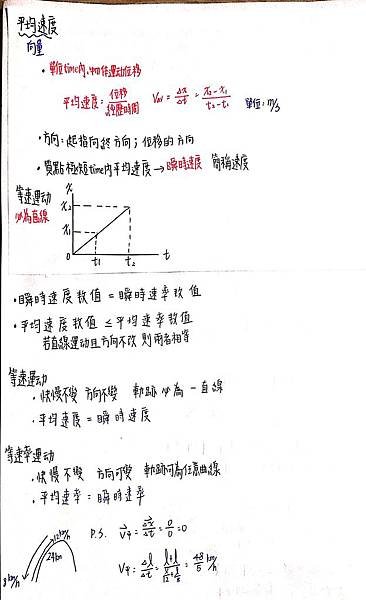 平均速度
向量
・單位time內,物体運動位移
平均速度=位移/經歷時間 Vav = Δx/Δt = x2-x1/t2-t1 單位:m/s
・方向:起指向終方向;位移的方向
・質點極短time內平均速度→瞬時速度 簡稱速度
等速運動
必為直線
x
x2
x1
0 t1 t2 t
・瞬時速度數值=瞬時速率數值
・平均速度數值≤平均速率數值
若直線運動且方向不改則兩者相等
等速運動
・快慢不變 方向不變 軌跡必為一直線
・平均速度=瞬時速度
等速率運動
・快慢不變 方向可變 軌跡可為任意曲線
・平均速率=瞬時速率
12km/h
24km
8km/h
P.S. V平=Δx/Δt=0/0=0
V平=Δl/Δt=l+l/(l/12+l/8)=48/5 km/h